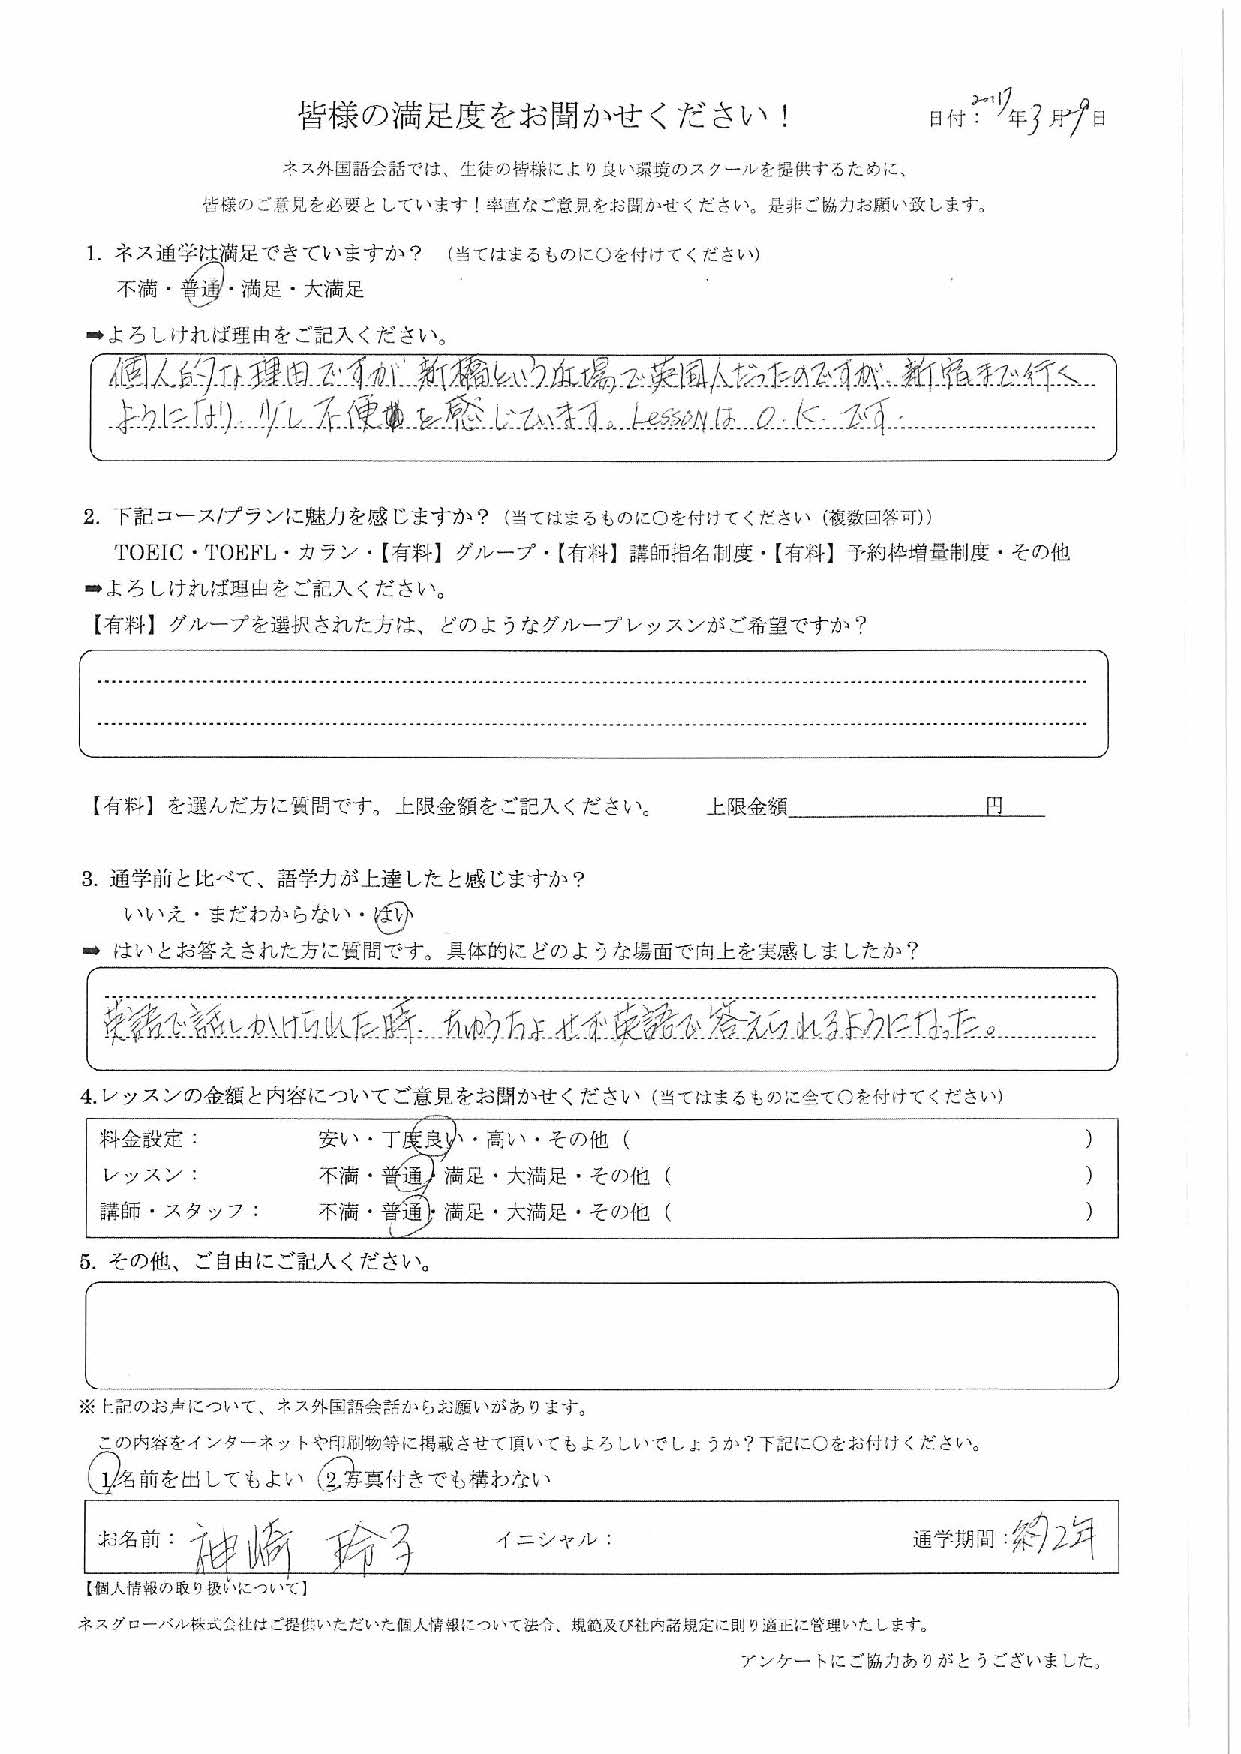 皆様の満足度をお聞かせください！
日付：2017年3月29日
ネス外国語会話では、生徒の皆様により良い環境のスクールを提供するために、
皆様のご意見を必要としています！率直なご意見をお聞かせください。是非ご協力お願い致します。
1. ネス通学は満足できていますか？（当てはまるものに〇を付けてください）
不満・普通・満足・大満足
➡よろしければ理由をご記入ください。
個人的な理由ですが、新橋という立場で英国人だったのですが、新宿まで行く
ようになり、少し不便を感じています。LessonはO.K.です.
2. 下記コース/プランに魅力を感じますか？（当てはまるものに〇を付けてください（複数回答可））
TOEIC・TOEFL・カラン・【有料】グループ・【有料】講師指名制度・【有料】予約枠増量制度・その他
➡よろしければ理由をご記入ください。
【有料】グループを選択された方は、どのようなグループレッスンがご希望ですか？
【有料】を選んだ方に質問です。上限金額をご記入ください。 上限金額 円
3. 通学前と比べて、語学力が上達したと感じますか？
いいえ・まだわからない・はい
➡ はいとお答えされた方に質問です。具体的にどのような場面で向上を実感しましたか？
英語で話しかけられた時、ちゅうちょせず英語で答えられるようになった。
4.レッスンの金額と内容についてご意見をお聞かせください（当てはまるものに全て〇を付けてください）
料金設定： 安い・丁度良い・高い・その他（ ）
レッスン： 不満・普通・満足・大満足・その他（ ）
講師・スタッフ： 不満・普通・満足・大満足・その他（ ）
5. その他、ご自由にご記入ください。
※上記のお声について、ネス外国語会話からお願いがあります。
この内容をインターネットや印刷物等に掲載させて頂いてもよろしいでしょうか？下記に〇をお付けください。
1.名前を出してもよい 2.写真付きでも構わない
お名前：神崎 玲子 イニシャル： 通学期間：約2年
【個人情報の取り扱いについて】
ネスグローバル株式会社はご提供いただいた個人情報について法令、規範及び社内諸規定に則り適正に管理いたします。
アンケートにご協力ありがとうございました。